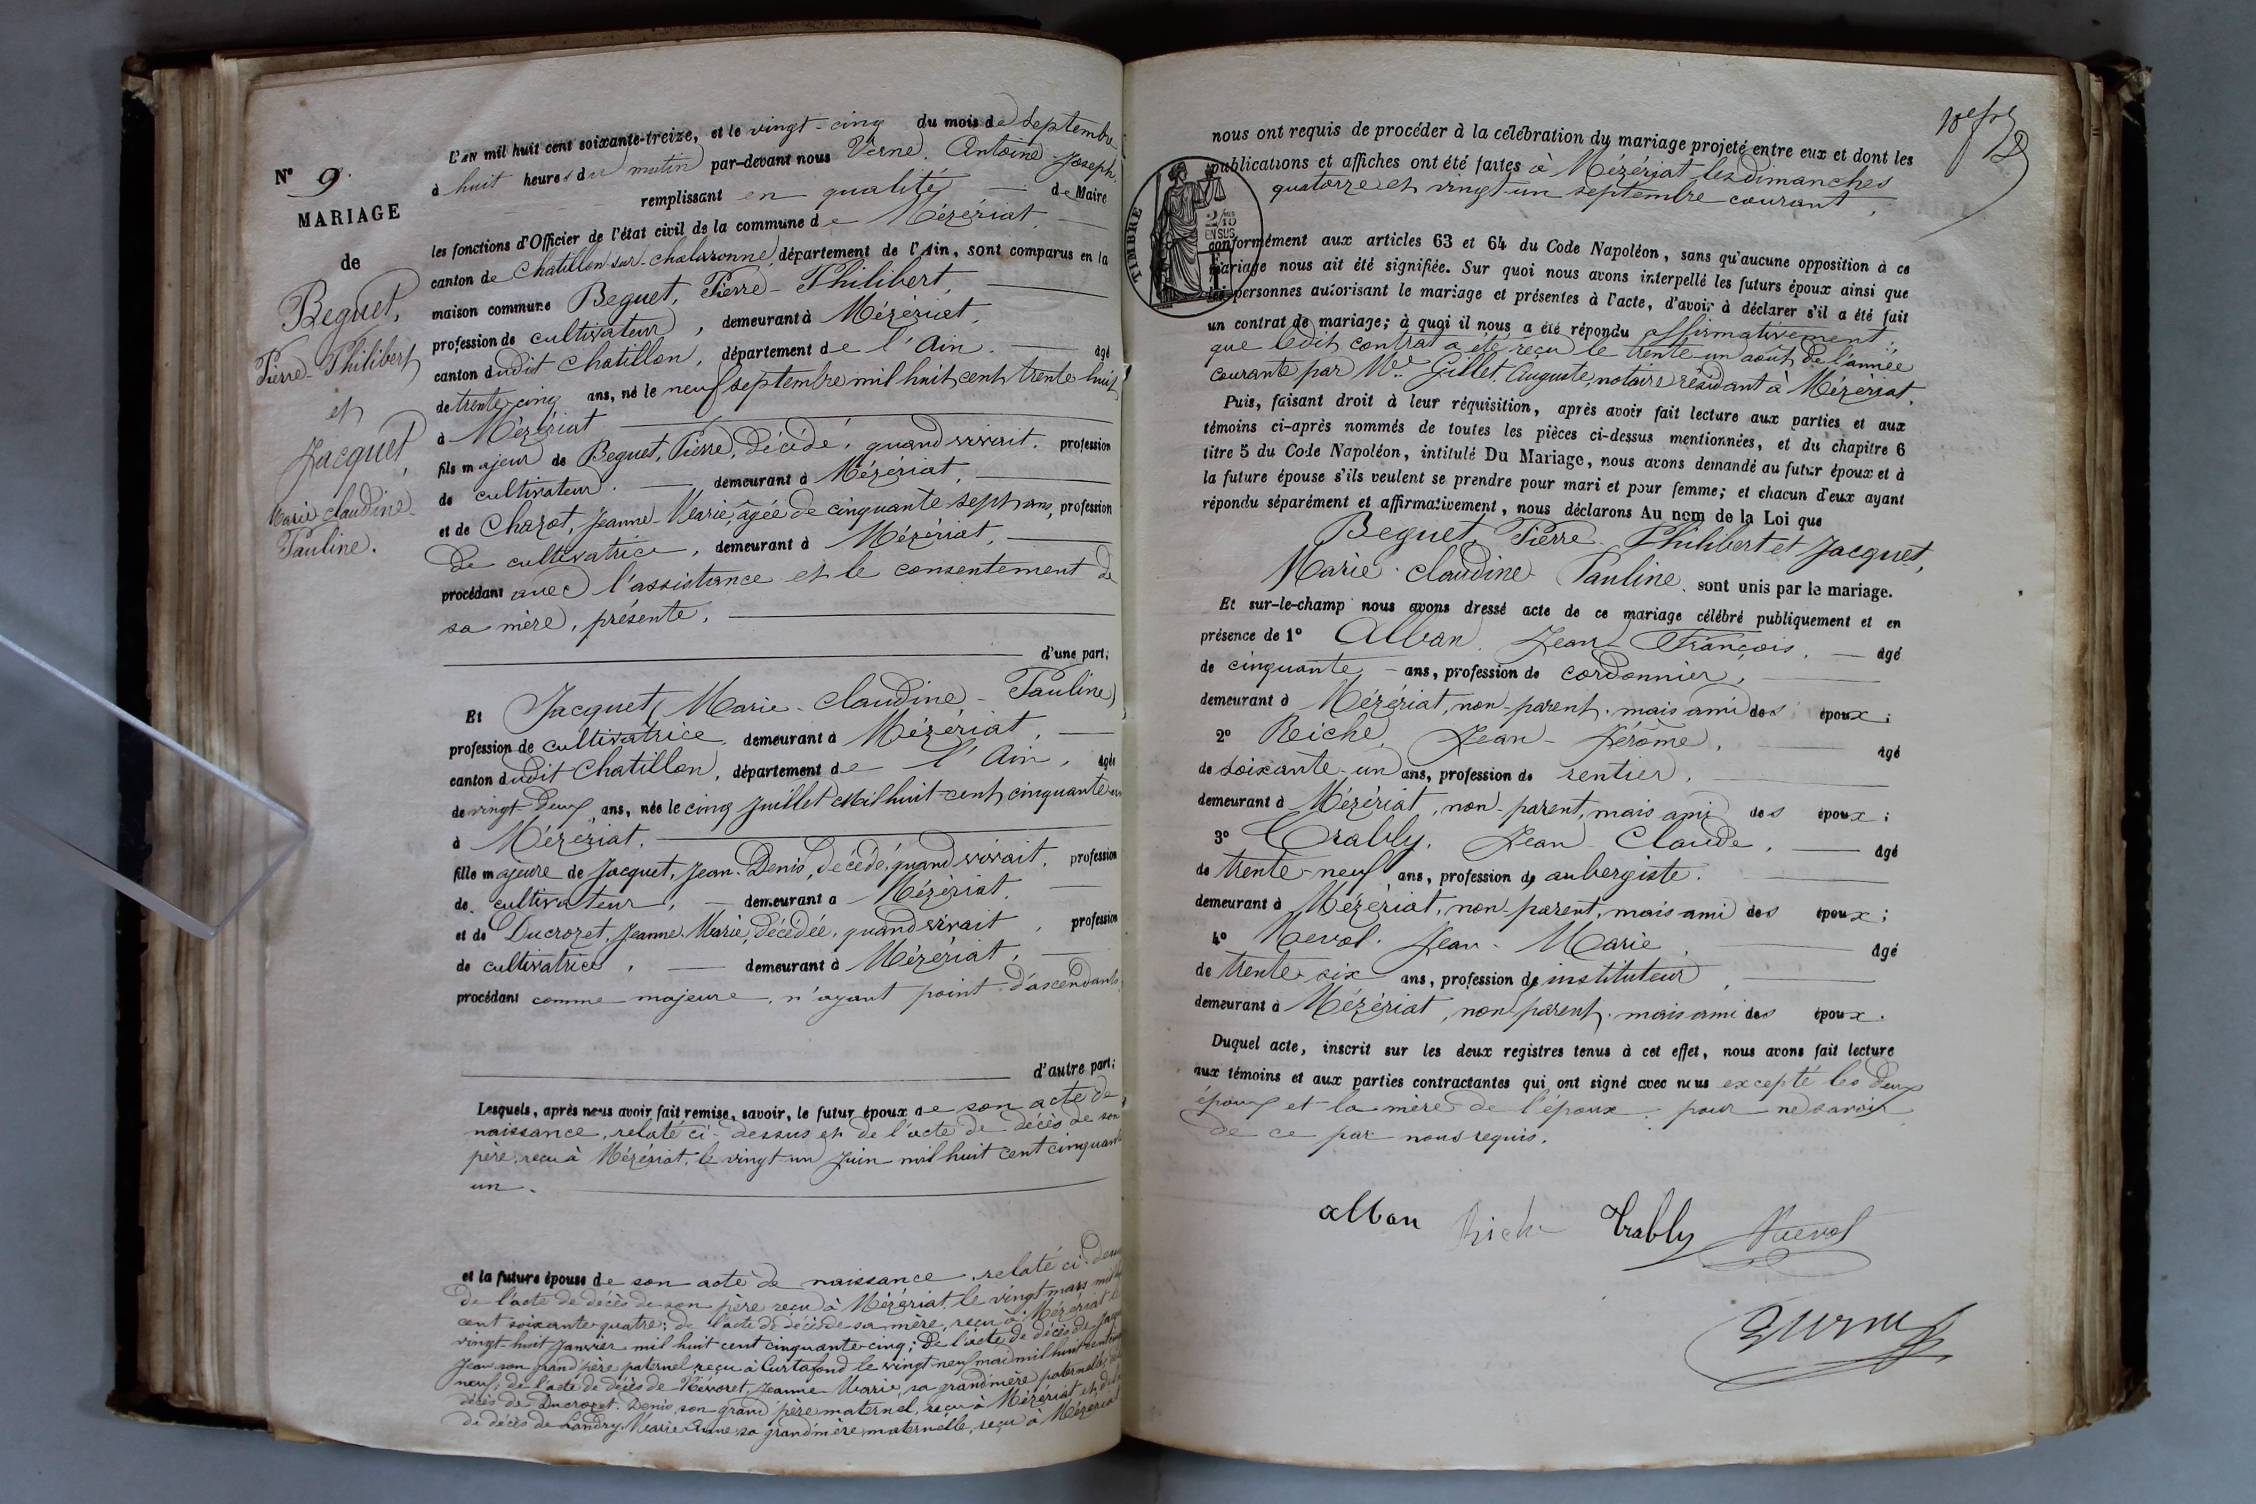 N° 9.
MARIAGE
de
Beguet,
Pierre-Philibert
et
Jacquet,
Marie claudine-
Pauline.
L'an mil huit cent soixante-treize, et le vingt-cinq du mois de Septembre
à huit heures du matin par-devant nous Verne, Antoine-Joseph,
remplissant en qualité de Maire
les fonctions d'Officier de l'état civil de la commune de Mézériat,
canton de Chatillon sur chalaronne, département de l'Ain, sont comparus en la
maison commune Beguet, Pierre-Philibert,
profession de cultivateur, demeurant à Mézériat,
canton dudit Chatillon, département de l'Ain. âgé
de trente-cinq ans, né le neuf septembre mil huit cent trente huit
à Mézériat
fils majeur de Beguet, Pierre, décédé, quand vivait, profession
de cultivateur, demeurant à Mézériat,
et de Chazot, Jeanne-Marie, âgée de cinquante-sept ans, profession
de cultivatrice, demeurant à Mézériat,
procédant avec l'assistance et le consentement de
sa mère, présente,
d'une part;
Et Jacquet, Marie-claudine-Pauline,
profession de cultivatrice, demeurant à Mézériat,
canton dudit Chatillon, département de l'Ain, âgée
de vingt-deux ans, née le cinq Juillet Mil huit-cent cinquante-un
à Mézériat.
fille majeure de Jacquet, Jean-Denis, décédé, quand vivait, profession
de cultivateur, demeurant à Mézériat
et de Ducrozet, Jeanne-Marie, décédée, quand vivait, profession
de cultivatrice, demeurant à Mézériat,
procédant comme majeure, n'ayant point d'ascendants,
d'autre part;
Lesquels, après nous avoir fait remise, savoir, le futur époux de son acte de
naissance, relaté ci-dessus et de l'acte de décès de son
père, reçu à Mézériat, le vingt-un Juin mil huit cent cinquante
un.
et la future épouse de son acte de naissance, relaté ci-dessus
de l'acte de décès de son père reçu à Mézériat, le vingt mars mil huit
cent soixante-quatre; de l'acte de décès de sa mère, reçu à Mézériat le
vingt-huit Janvier mil huit cent cinquante-cinq; De l'acte de décès de Jacquet
Jean son grand père paternel reçu à Curtafond le vingt-neuf mai mil huit cent
neuf; de l'acte de décès de Jeanne-Marie, sa grand'mère paternelle,
décès de Ducrozet, Denis, son grand père maternel, reçu à Mézériat et de
de décès de Landry, Marie-Anne, sa grand'mère maternelle, reçu à Mézériat
TIMBRE
2/10
EN SUS
nous ont requis de procéder à la célébration du mariage projeté entre eux et dont les
publications et affiches ont été faites à Mézériat les dimanches
quatorze et vingt-un septembre courant,
conformément aux articles 63 et 64 du Code Napoléon, sans qu'aucune opposition à ce
mariage nous ait été signifiée. Sur quoi nous avons interpellé les futurs époux ainsi que
les personnes autorisant le mariage et présentes à l'acte, d'avoir à déclarer s'il a été fait
un contrat de mariage; à quoi il nous a été répondu affirmativement;
que ledit contrat a été reçu le trente-un août de l'année
courante par Me Gillet, Auguste, notaire résidant à Mézériat.
Puis, faisant droit à leur réquisition, après avoir fait lecture aux parties et aux
témoins ci-après nommés de toutes les pièces ci-dessus mentionnées, et du chapitre 6
titre 5 du Code Napoléon, intitulé Du Mariage, nous avons demandé au futur époux et à
la future épouse s'ils veulent se prendre pour mari et pour femme; et chacun d'eux ayant
répondu séparément et affirmativement, nous déclarons Au nom de la Loi que
Beguet, Pierre-Philibert et Jacquet,
Marie-claudine-Pauline, sont unis par le mariage.
Et sur-le-champ nous avons dressé acte de ce mariage célébré publiquement et en
présence de 1° Alban, Jean-François, âgé
de cinquante ans, profession de cordonnier,
demeurant à Mézériat, non-parent, mais ami des époux;
2° Reiche, Jean-Jérôme, âgé
de soixante-un ans, profession de rentier,
demeurant à Mézériat, non-parent, mais ami des époux;
3° Trably, Jean-Claude, âgé
de trente-neuf ans, profession de aubergiste.
demeurant à Mézériat, non-parent, mais ami des époux;
4° Revol, Jean-Marie, âgé
de trente-six ans, profession de instituteur,
demeurant à Mézériat, non parent, mais ami des époux.
Duquel acte, inscrit sur les deux registres tenus à cet effet, nous avons fait lecture
aux témoins et aux parties contractantes qui ont signé avec nous excepté les deux
époux et la mère de l'époux, pour ne savoir
de ce par nous requis.
alban Trably Revol